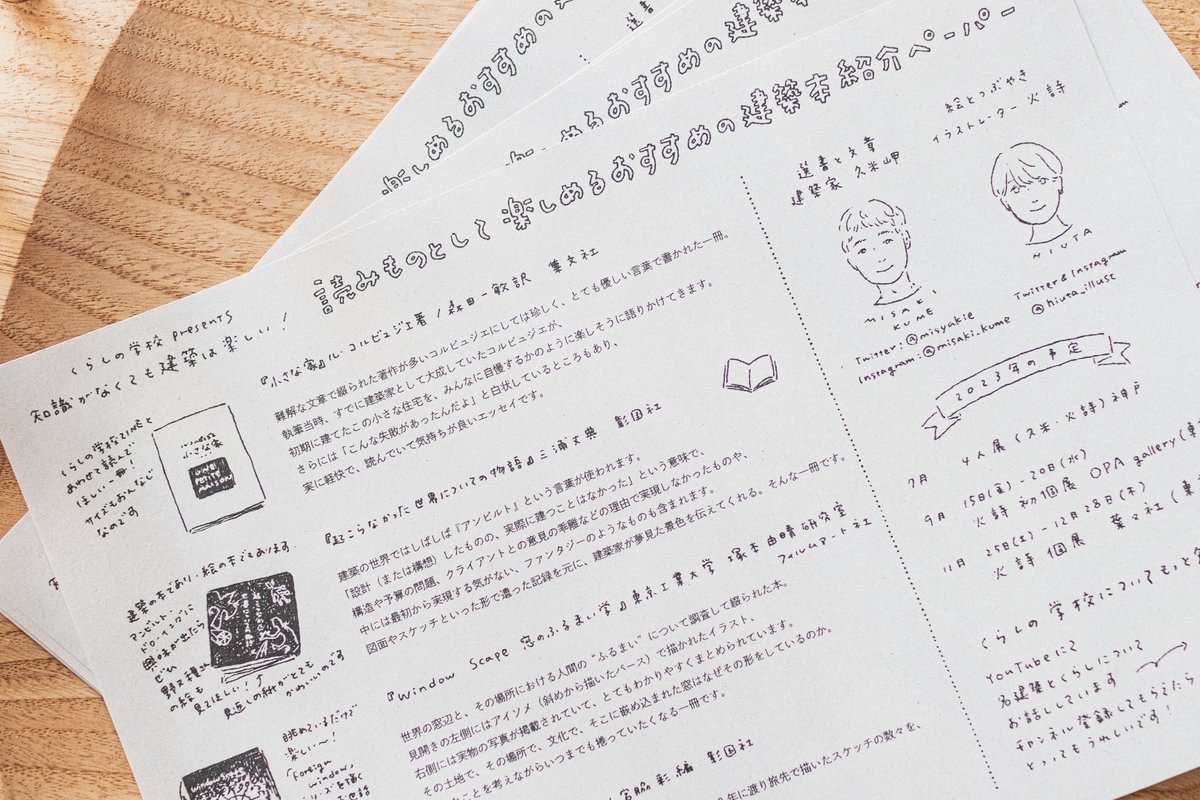 楽しめるおすすめの
選書
楽しめるおすすめの建築
くらしの学校 presents
知識がなくても建築は楽しい！
読みものとして楽しめるおすすめの建築本紹介ペーパー
『小さな家』ル・コルビュジエ著／森田一敏訳 集文社
難解な文章で綴られた著作が多いコルビュジエにしては珍しく、とても優しい言葉で書かれた一冊。
執筆当時、すでに建築家として大成していたコルビュジエが、
初期に建てたこの小さな住宅を、みんなに自慢するかのように楽しそうに語りかけてきます。
さらには「こんな失敗があったんだよ」と白状しているところもあり、
実に軽快で、読んでいて気持ちが良いエッセイです。
くらしの学校と
あわせて読んで
ほしい一冊！
サイズもおんなじ
なのです
小さな家
UNE
PETITE
MAISON
『起こらなかった世界についての物語』三浦丈典 彰国社
建築の世界ではしばしば『アンビルト』という言葉が使われます。
「設計（または構想）したものの、実際に建つことはなかった」という意味で、
構造や予算の問題、クライアントとの意見の乖離などの理由で実現しなかったものや、
中には最初から実現する気がない、ファンタジーのようなものも含まれます。
図面やスケッチといった形で遺った記録を元に、建築家が夢見た景色を伝えてくれる。そんな一冊です。
建築の本であり、絵の本でもあります。
アンビルトドローイングに
興味が出たら
ぜひ
の絵も
見てほしい！
見返しの紙がとても
かわいいのです
『Window Scape 窓のふるまい学』東京工業大学 塚本由晴研究室
フィルムアート社
世界の窓辺と、その場所における人間の“ふるまい”について調査して綴られた本。
見開きの左側にはアイソメ（斜めから描いたパース）で描かれたイラスト、
右側には実物の写真が掲載されていて、とてもわかりやすくまとめられています。
その土地で、その場所で、文化で、そこに嵌め込まれた窓はなぜその形をしているのか。
ことを考えながらいつまでも捲っていたくなる一冊です。
眺めているだけで
楽しい〜！
「Foreign
window」
シリーズを描く
WindowScape
宮脇彩編 彰国社
年に渡り旅先で描いたスケッチの数々を、
選書と文章
建築家 久米岬
絵とつぶやき
イラストレーター 火詩
MISAKI
KUME
HIUTA
Twitter:@misyakie
Instagram:@misaki_kume
Twitter&Instagram
@hiuta_illust
2023年の予定
7月 4人展（久米・火詩）神戸
9月 15日(金)-20日(水)
火詩 初個展 OPA gallery(東
11月 25日(土)-12月28日(木)
火詩 個展 葉々社(東
くらしの学校についてもっと
YouTubeにて
名建築とくらしについて
お話ししています
チャンネル登録してもらえたら
とってもうれしいです！